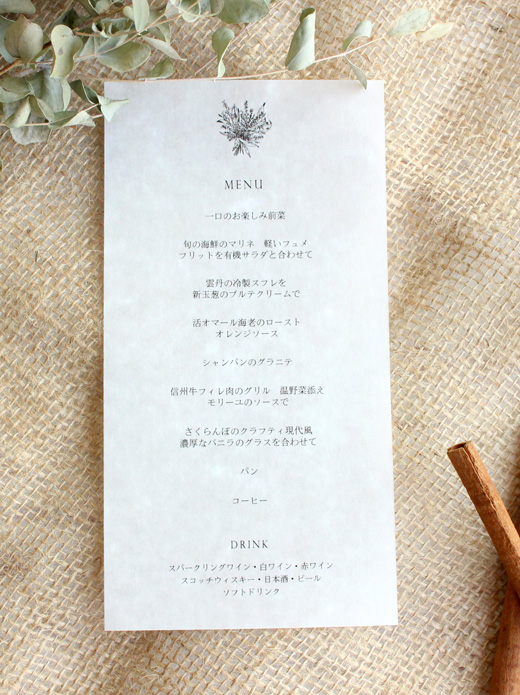 MENU
一口のお楽しみ前菜
旬の海鮮のマリネ　軽いフュメ
フリットを有機サラダと合わせて
雲丹の冷製スフレを
新玉葱のブルテクリームで
活オマール海老のロースト
オレンジソース
シャンパンのグラニテ
信州牛フィレ肉のグリル　温野菜添え
モリーユのソースで
さくらんぼのクラフティ現代風
濃厚なバニラのグラスを合わせて
パン
コーヒー
DRINK
スパークリングワイン・白ワイン・赤ワイン
スコッチウィスキー・日本酒・ビール
ソフトドリンク